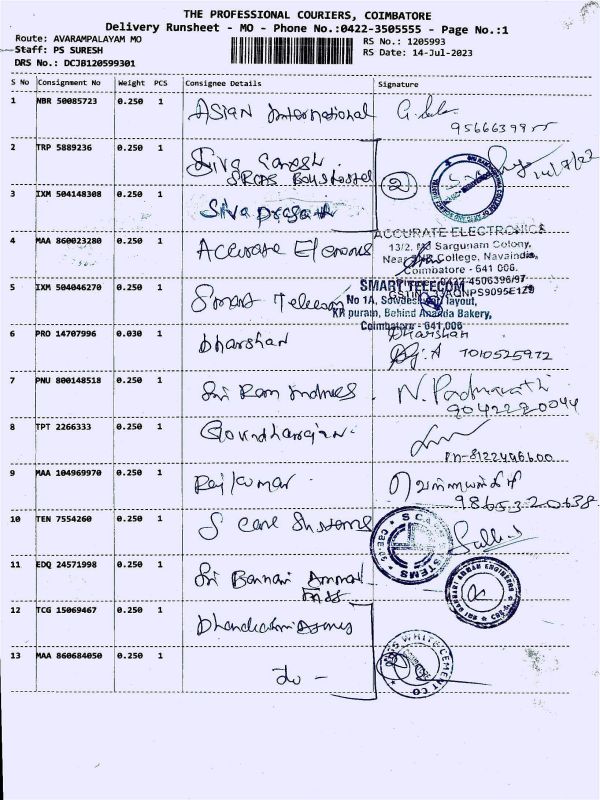 THE PROFESSIONAL COURIERS, COIMBATORE
Delivery Runsheet - MO - Phone No.:0422-3505555 - Page No.:1
Route: AVARAMPALAYAM MO
RS No.: 1205993
Staff: PS SURESH
RS Date: 14-Jul-2023
DRS No.: DCJB120599301
S No Consignment No Weight PCS Consignee Details Signature
1 NBR 50085723 0.250 1 ASIAN International
2 TRP 5889236 0.250 1 Siva Ganesh
3 IXM 504148308 0.250 1 Siva Prasath
ACCURATE ELECTRONICS
4 MAA 860023280 0.250 1 Accurate
13/2, Sargunam Colony,
College, Navaindia,
Coimbatore - 641 006.
5 IXM 504046270 0.250 1 Smart Telecom
SMART TELECOM
No 1A, Sowdeswari layout,
KR puram, Behind Ananda Bakery,
Coimbatore - 641 006
6 PRO 14707996 0.030 1 Dharshan
Dharshan
7010525972
7 PNU 800148518 0.250 1 Sri Ram
N. Padmavathi
9042220044
8 TPT 2266333 0.250 1
Ph-8122496600
9 MAA 104969970 0.250 1 Rajkumar
9865320638
10 TEN 7554260 0.250 1 S Care Systems
11 EDQ 24571998 0.250 1 Sri Bannari Amman
SRI BANNARI AMMAN ENGINEERS
12 TCG 15069467 0.250 1
13 MAA 860684050 0.250 1 do -
WHITE CEMENT CO